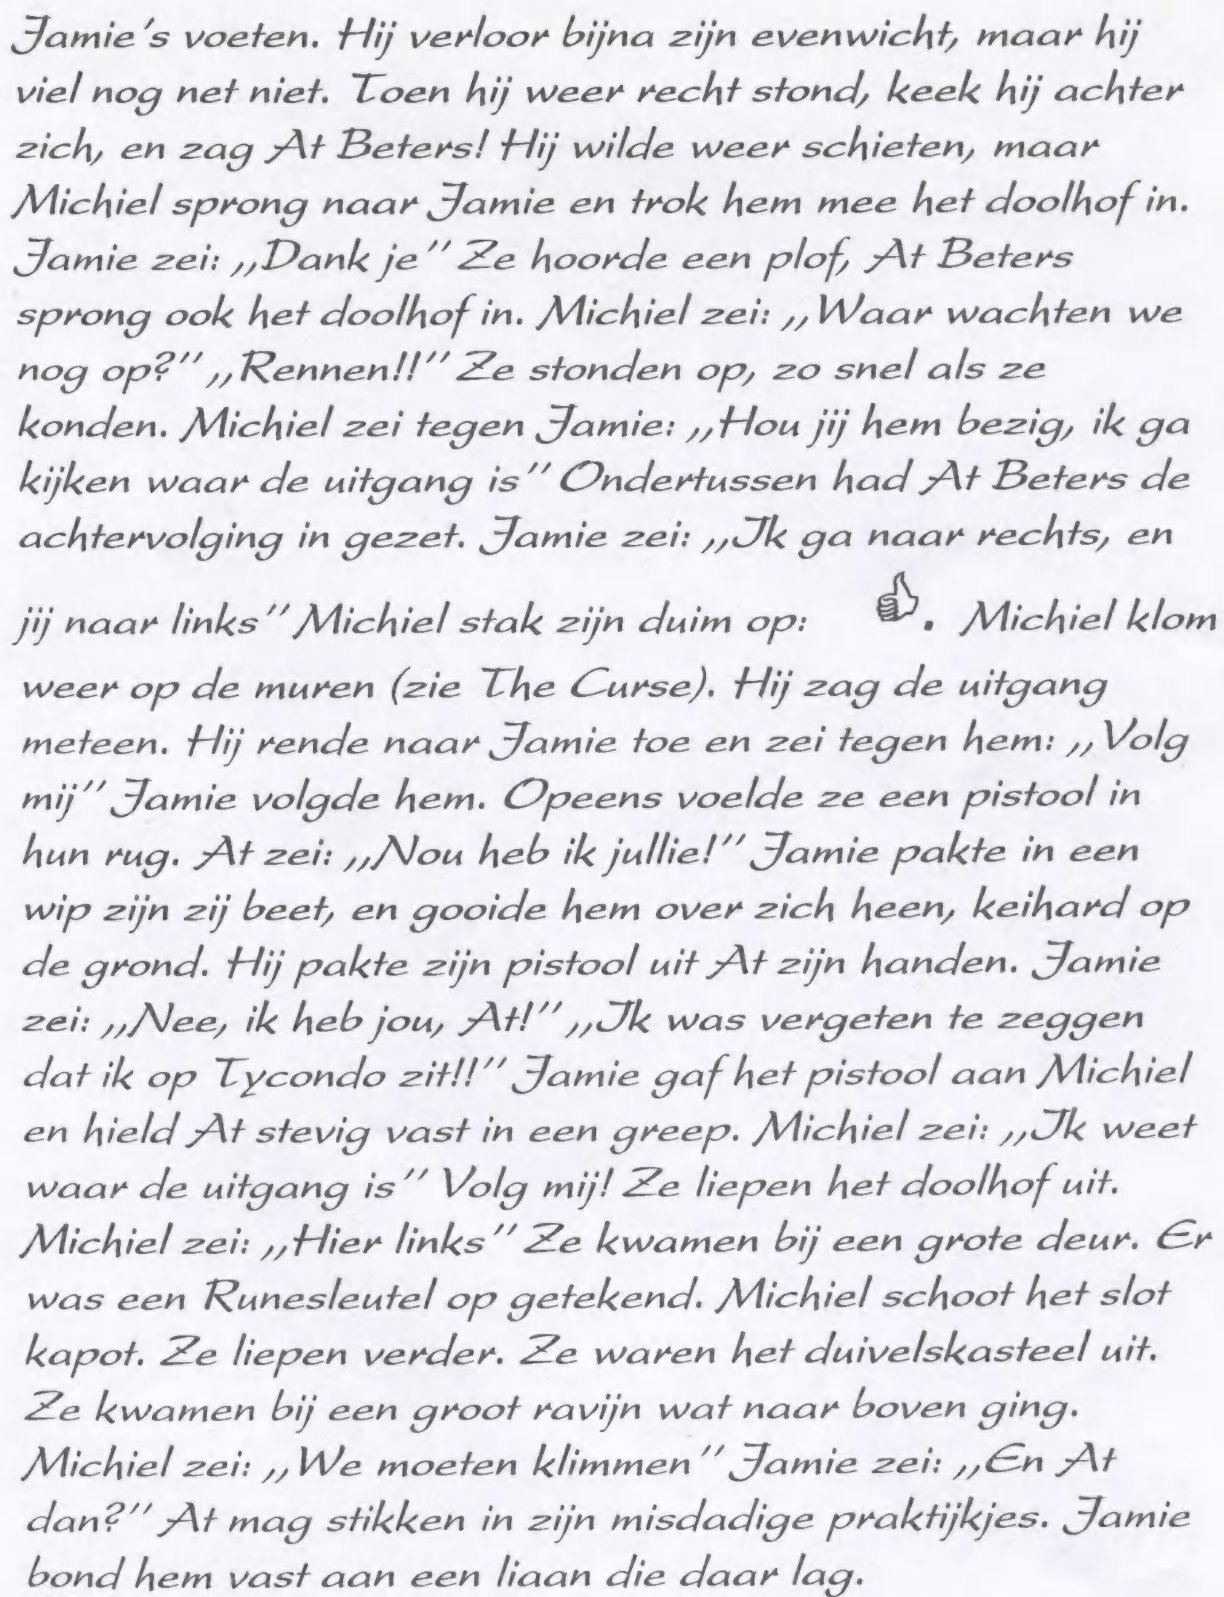 Jamie's voeten. Hij verloor bijna zijn evenwicht, maar hij
viel nog net niet. Toen hij weer recht stond, keek hij achter
zich, en zag At Beters! Hij wilde weer schieten, maar
Michiel sprong naar Jamie en trok hem mee het doolhof in.
Jamie zei: ,,Dank je" Ze hoorde een plof, At Beters
sprong ook het doolhof in. Michiel zei: ,,Waar wachten we
nog op?" ,,Rennen!!" Ze stonden op, zo snel als ze
konden. Michiel zei tegen Jamie: ,,Hou jij hem bezig, ik ga
kijken waar de uitgang is" Ondertussen had At Beters de
achtervolging in gezet. Jamie zei: ,,Ik ga naar rechts, en
jij naar links" Michiel stak zijn duim op: 👍. Michiel klom
weer op de muren (zie The Curse). Hij zag de uitgang
meteen. Hij rende naar Jamie toe en zei tegen hem: ,,Volg
mij" Jamie volgde hem. Opeens voelde ze een pistool in
hun rug. At zei: ,,Nou heb ik jullie!" Jamie pakte in een
wip zijn zij beet, en gooide hem over zich heen, keihard op
de grond. Hij pakte zijn pistool uit At zijn handen. Jamie
zei: ,,Nee, ik heb jou, At!" ,,Ik was vergeten te zeggen
dat ik op Tycondo zit!!" Jamie gaf het pistool aan Michiel
en hield At stevig vast in een greep. Michiel zei: ,,Ik weet
waar de uitgang is" Volg mij! Ze liepen het doolhof uit.
Michiel zei: ,,Hier links" Ze kwamen bij een grote deur. Er
was een Runesleutel op getekend. Michiel schoot het slot
kapot. Ze liepen verder. Ze waren het duivelskasteel uit.
Ze kwamen bij een groot ravijn wat naar boven ging.
Michiel zei: ,,We moeten klimmen" Jamie zei: ,,En At
dan?" At mag stikken in zijn misdadige praktijkjes. Jamie
bond hem vast aan een liaan die daar lag.